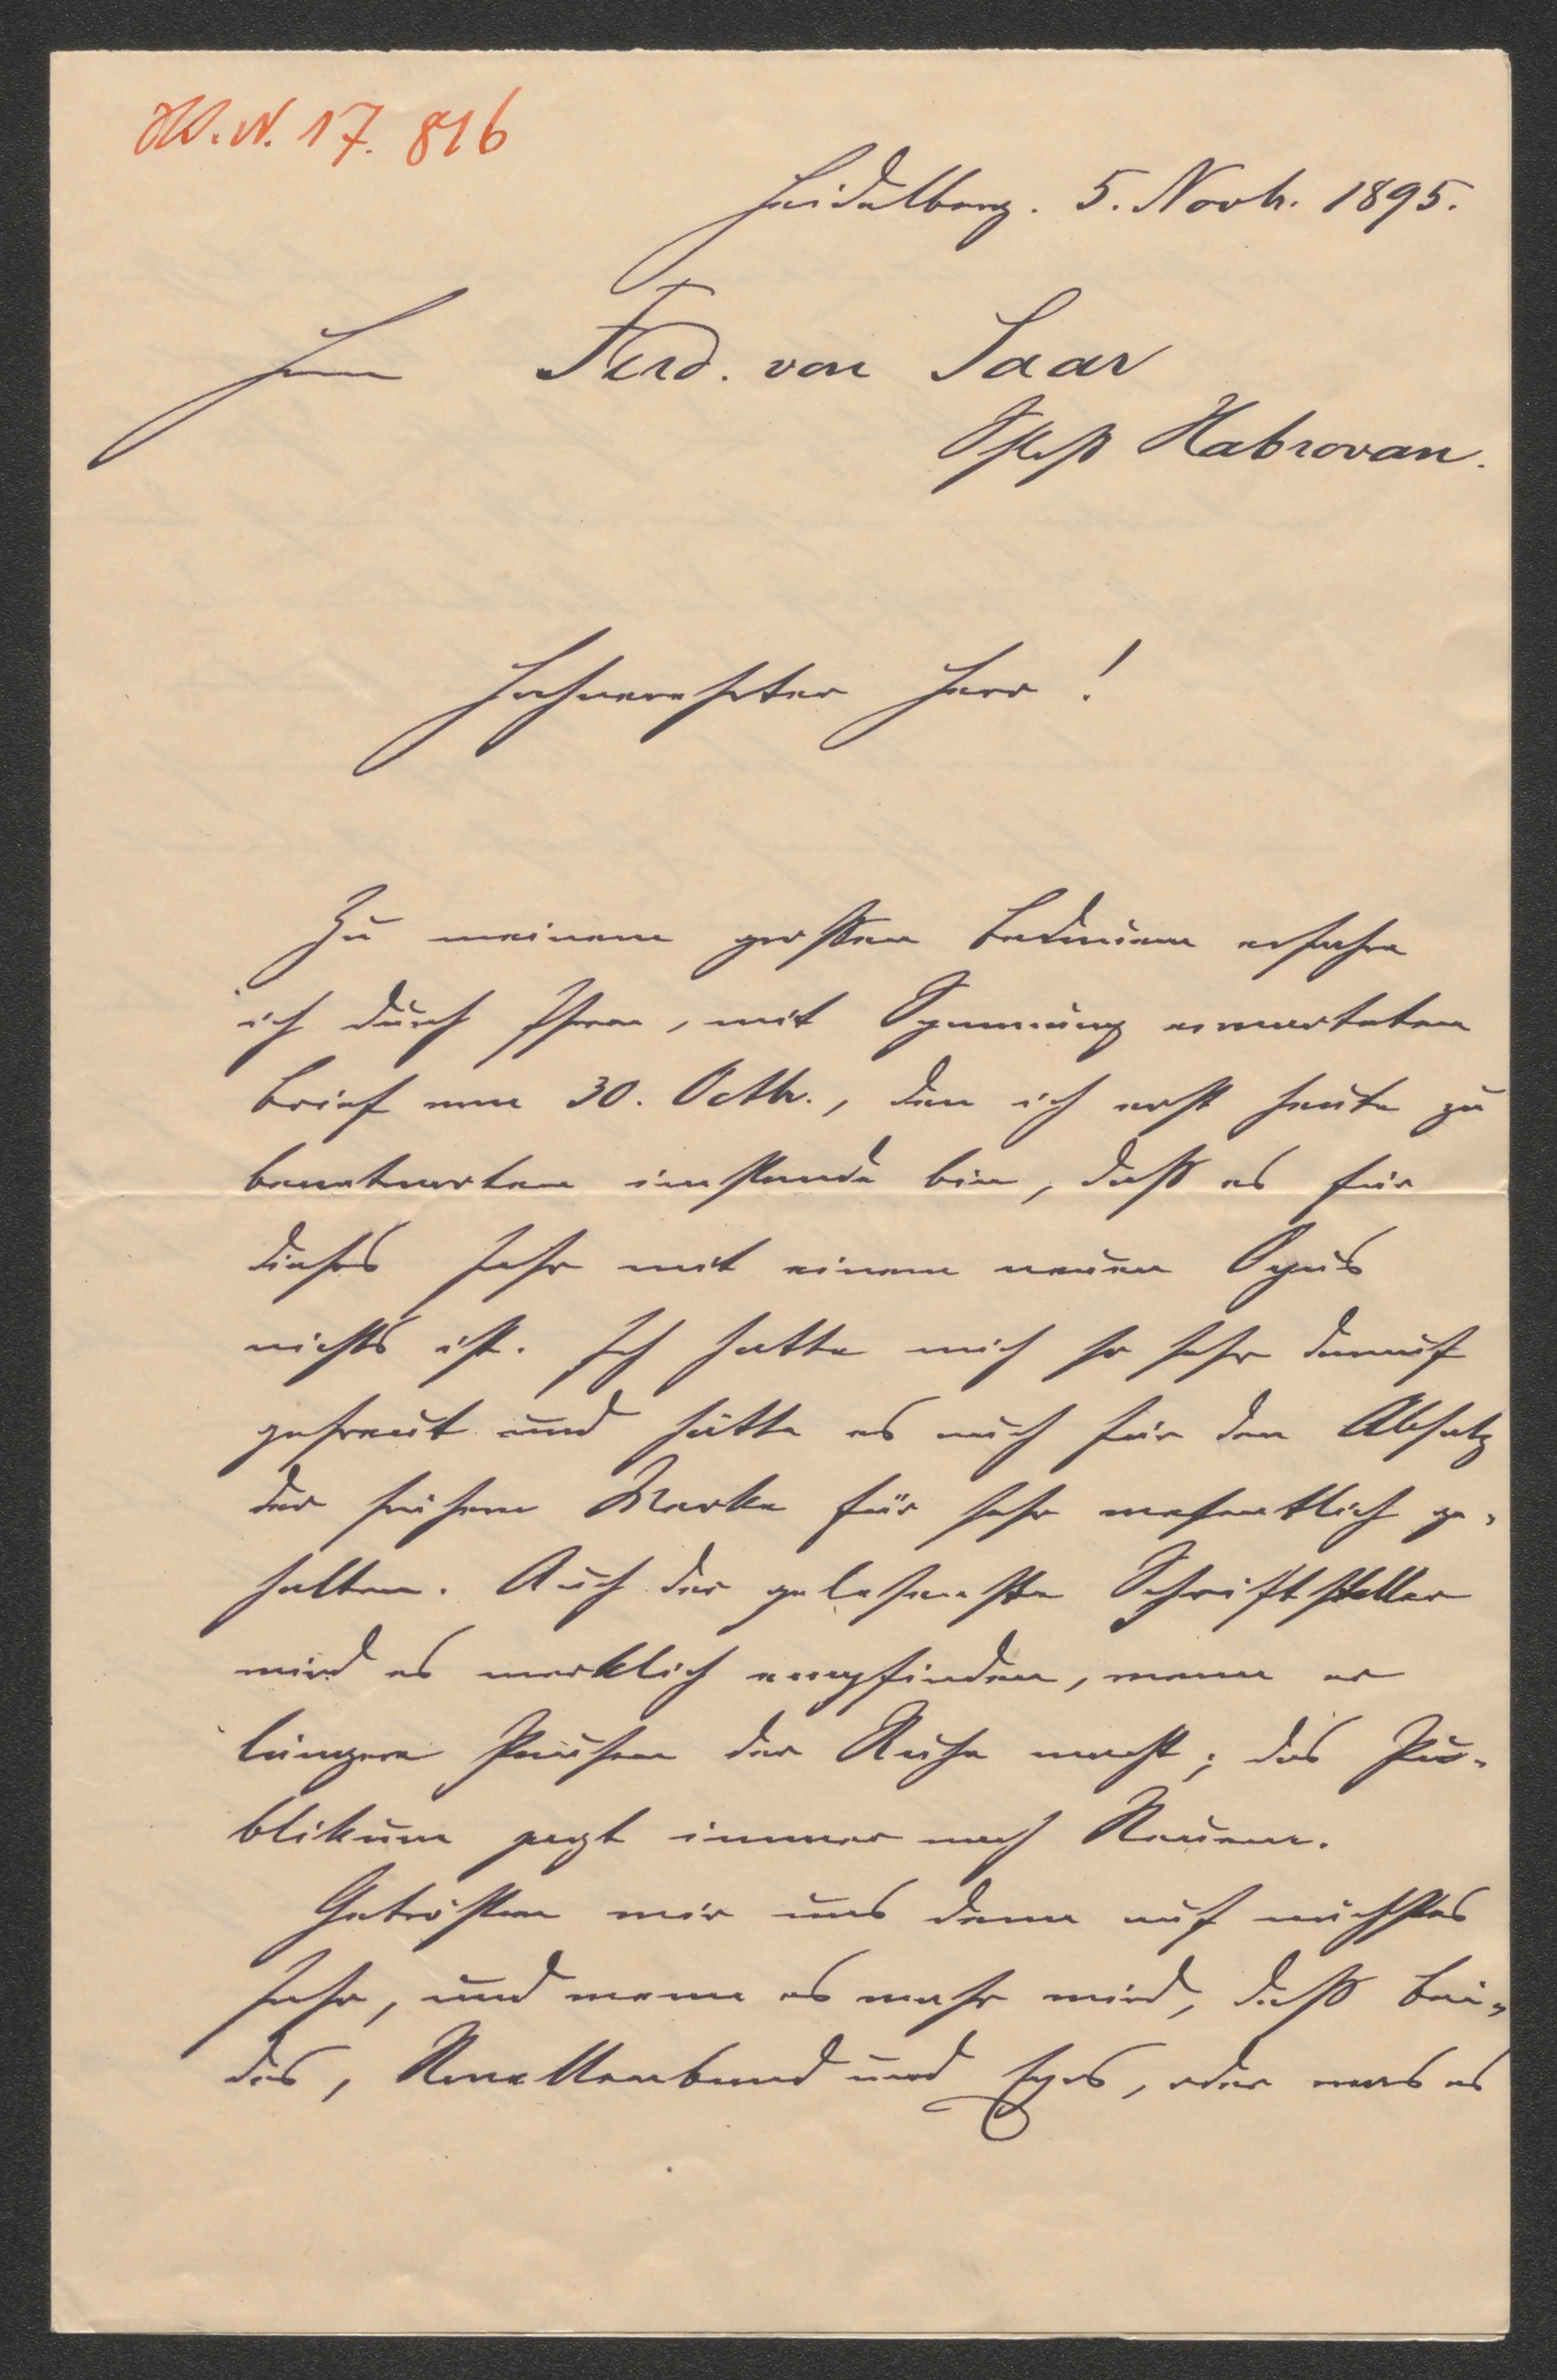 H.I.N. 17. 816
Heidelberg. 5. Novbr. 1895.
Herrn Ferd. von Saar
Schloß Habrovan.
Hochverehrter Herr!
Zu meinem großen Bedauern erfahre
ich durch Ihren, mit Spannung erwarteten
Brief vom 30. Octbr., den ich erst heute zu
beantworten imstande bin, daß es für
dieses Jahr mit einem neuen Opus
nichts ist. Ich hatte mich so sehr darauf
gefreut und hätte es auch für den Absatz
der früheren Werke für sehr wesentlich ge-
halten. Auch der gelesenste Schriftsteller
wird es merklich empfinden, wenn er
längere Pausen der Ruhe macht; das Pu-
blikum geizt immer nach Neuem.
Getrösten wir uns denn auf nächstes
Jahr, und wenn es wahr wird, daß bei-
des, Novellenband und Epos, oder was es